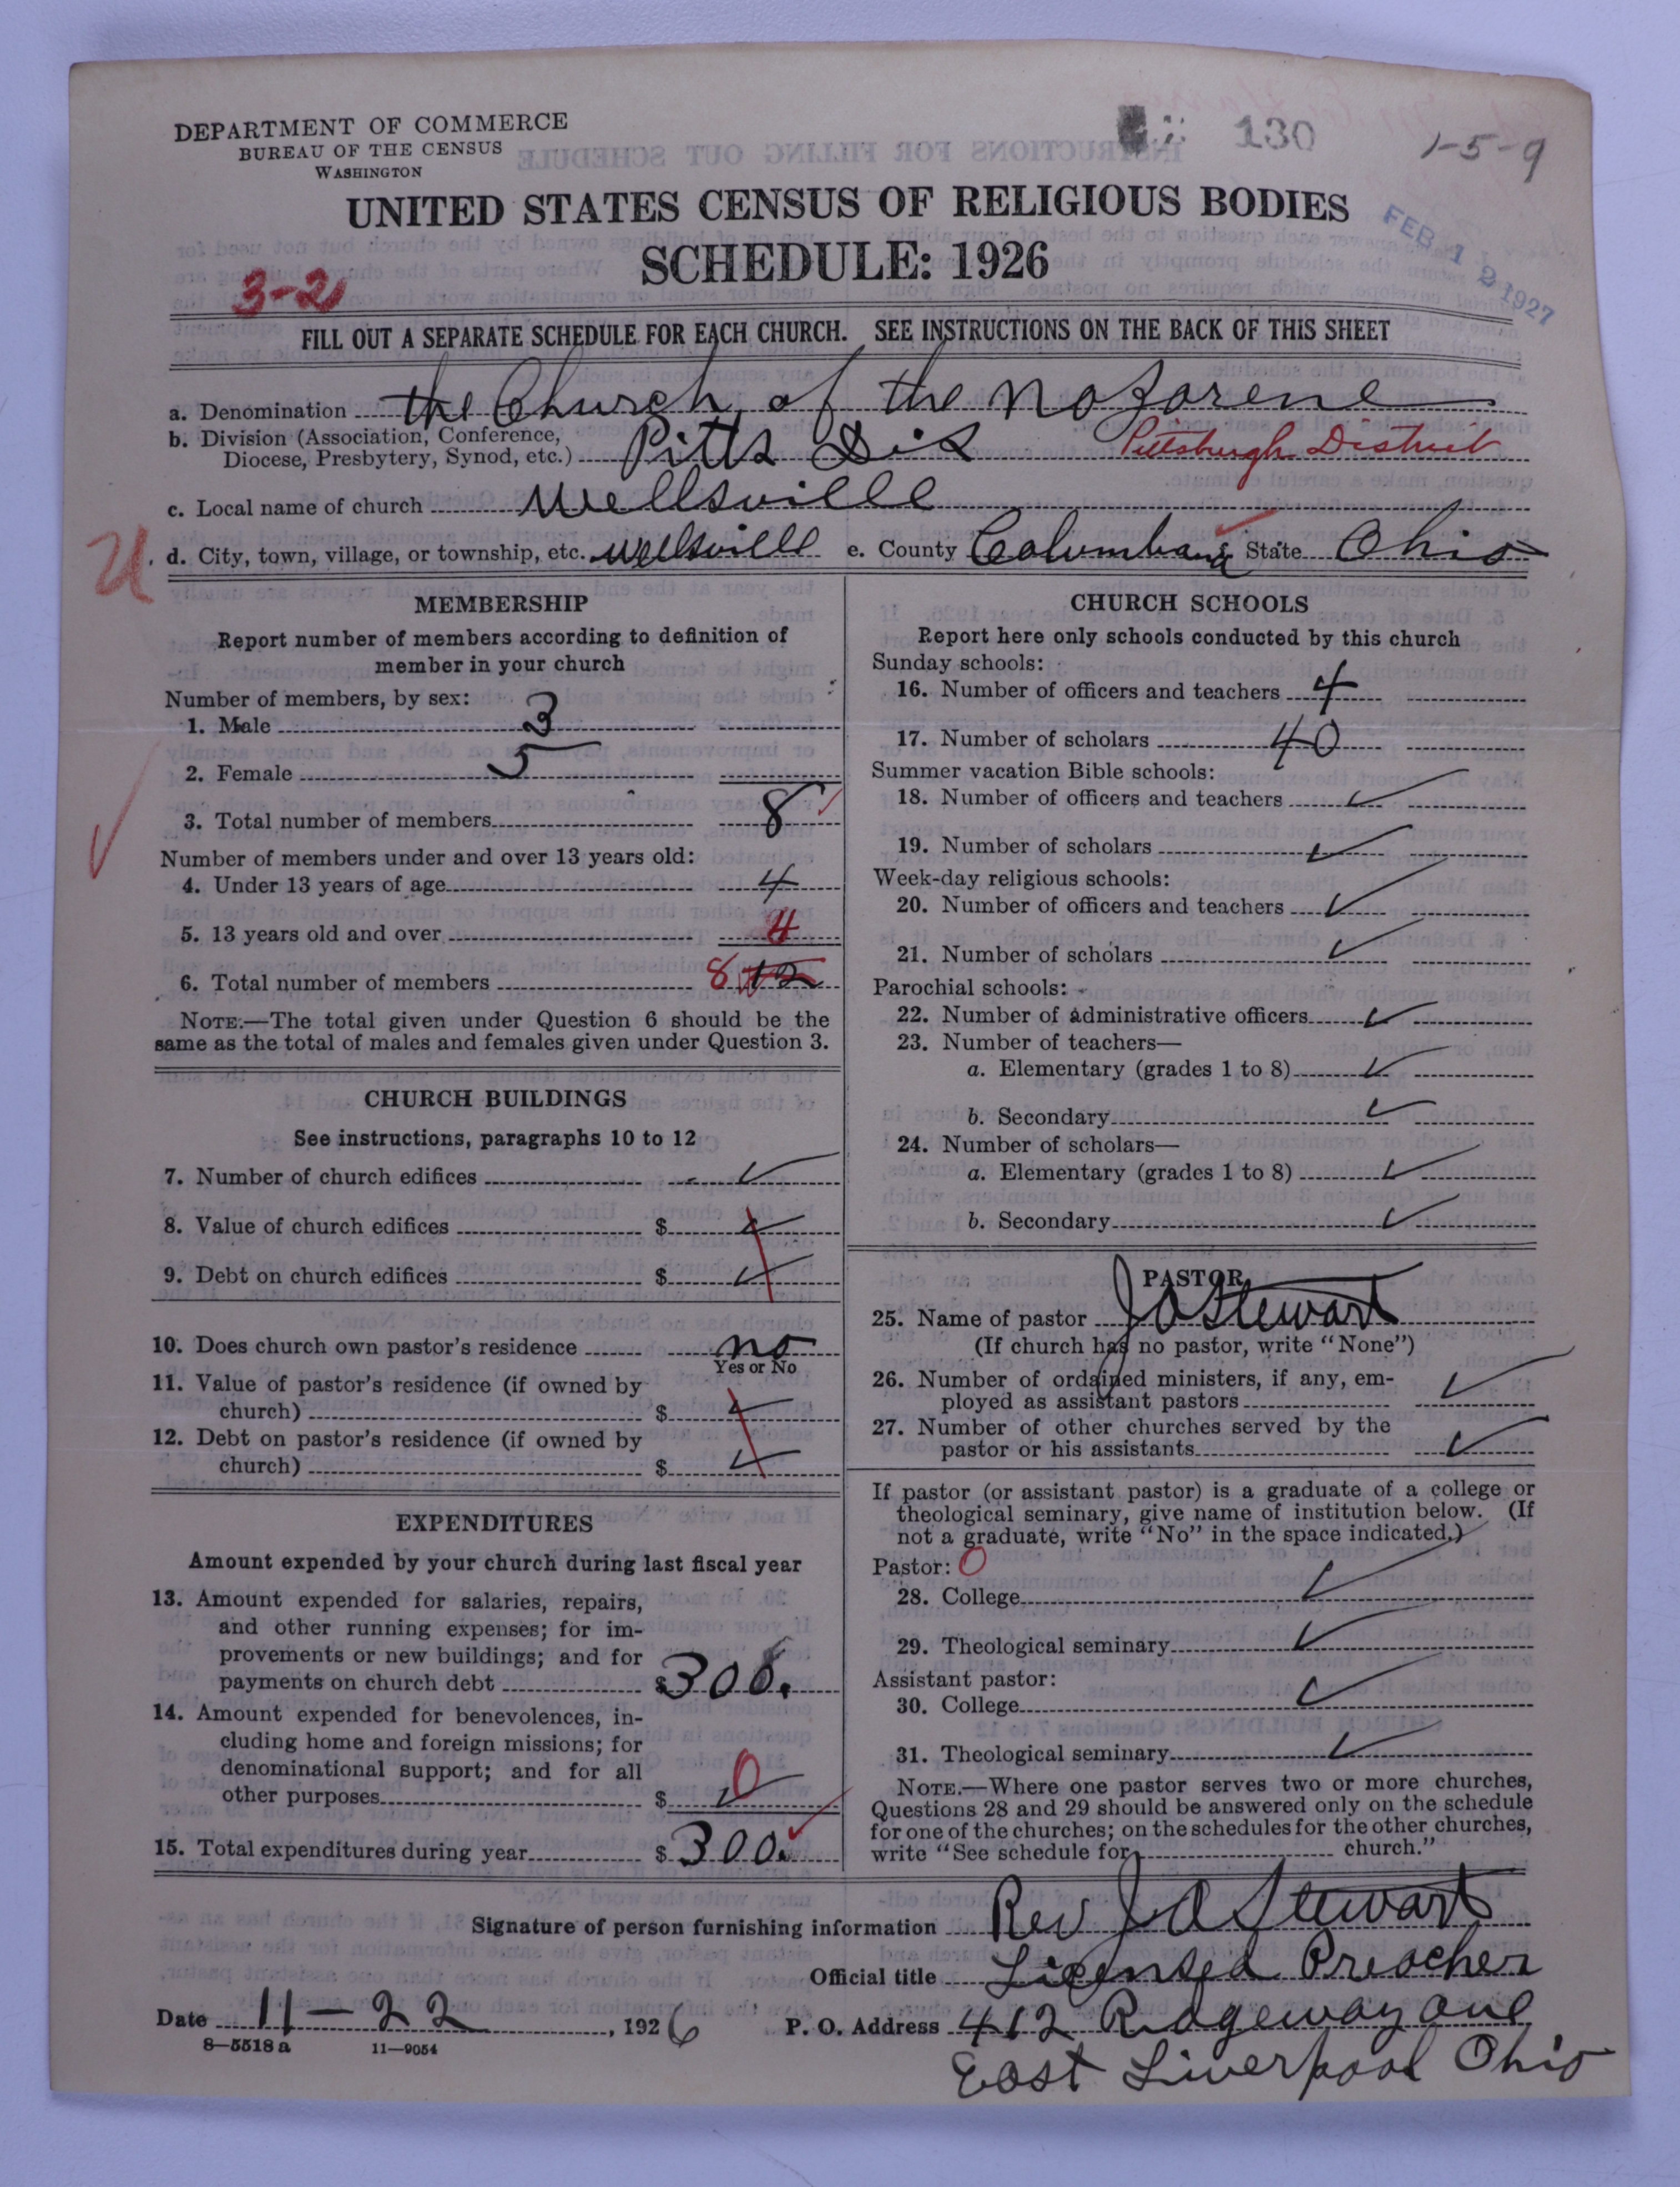 DEPARTMENT OF COMMERCE
BUREAU OF THE CENSUS
WASHINGTON
130
1-5-9
UNITED STATES CENSUS OF RELIGIOUS BODIES
SCHEDULE: 1926
FEB 12 1927
3-2
FILL OUT A SEPARATE SCHEDULE FOR EACH CHURCH. SEE INSTRUCTIONS ON THE BACK OF THIS SHEET
a. Denomination the Church of the Nazarene
b. Division (Association, Conference, Diocese, Presbytery, Synod, etc.) Pitts Dis Pittsburgh District
c. Local name of church Wellsville
d. City, town, village, or township, etc. Wellsville e. County Columbiana State Ohio
MEMBERSHIP
Report number of members according to definition of
member in your church
Number of members, by sex:
1. Male 3
2. Female 5
3. Total number of members 8
Number of members under and over 13 years old:
4. Under 13 years of age 4
5. 13 years old and over 4
6. Total number of members 8 12
NOTE.—The total given under Question 6 should be the
same as the total of males and females given under Question 3.
CHURCH BUILDINGS
See instructions, paragraphs 10 to 12
7. Number of church edifices ✓
8. Value of church edifices $ ✓
9. Debt on church edifices $ ✓
10. Does church own pastor's residence no
Yes or No
11. Value of pastor's residence (if owned by
church) $ ✓
12. Debt on pastor's residence (if owned by
church) $ ✓
EXPENDITURES
Amount expended by your church during last fiscal year
13. Amount expended for salaries, repairs,
and other running expenses; for im-
provements or new buildings; and for
payments on church debt $ 300.
14. Amount expended for benevolences, in-
cluding home and foreign missions; for
denominational support; and for all
other purposes $ ✓ 0
15. Total expenditures during year $ 300.
CHURCH SCHOOLS
Report here only schools conducted by this church
Sunday schools:
16. Number of officers and teachers 4
17. Number of scholars 40
Summer vacation Bible schools:
18. Number of officers and teachers ✓
19. Number of scholars ✓
Week-day religious schools:
20. Number of officers and teachers ✓
21. Number of scholars ✓
Parochial schools:
22. Number of administrative officers ✓
23. Number of teachers—
a. Elementary (grades 1 to 8) ✓
b. Secondary ✓
24. Number of scholars—
a. Elementary (grades 1 to 8) ✓
b. Secondary ✓
PASTOR
25. Name of pastor J A Stewart
(If church has no pastor, write "None")
26. Number of ordained ministers, if any, em-
ployed as assistant pastors ✓
27. Number of other churches served by the
pastor or his assistants ✓
If pastor (or assistant pastor) is a graduate of a college or
theological seminary, give name of institution below. (If
not a graduate, write "No" in the space indicated.)
Pastor: 0
28. College ✓
29. Theological seminary ✓
Assistant pastor:
30. College ✓
31. Theological seminary ✓
NOTE.—Where one pastor serves two or more churches,
Questions 28 and 29 should be answered only on the schedule
for one of the churches; on the schedules for the other churches,
write "See schedule for church."
Signature of person furnishing information Rev J A Stewart
Official title Licensed Preacher
Date 11-22, 1926 P. O. Address 412 Ridgeway ave
East Liverpool Ohio
8—5518a 11—9054